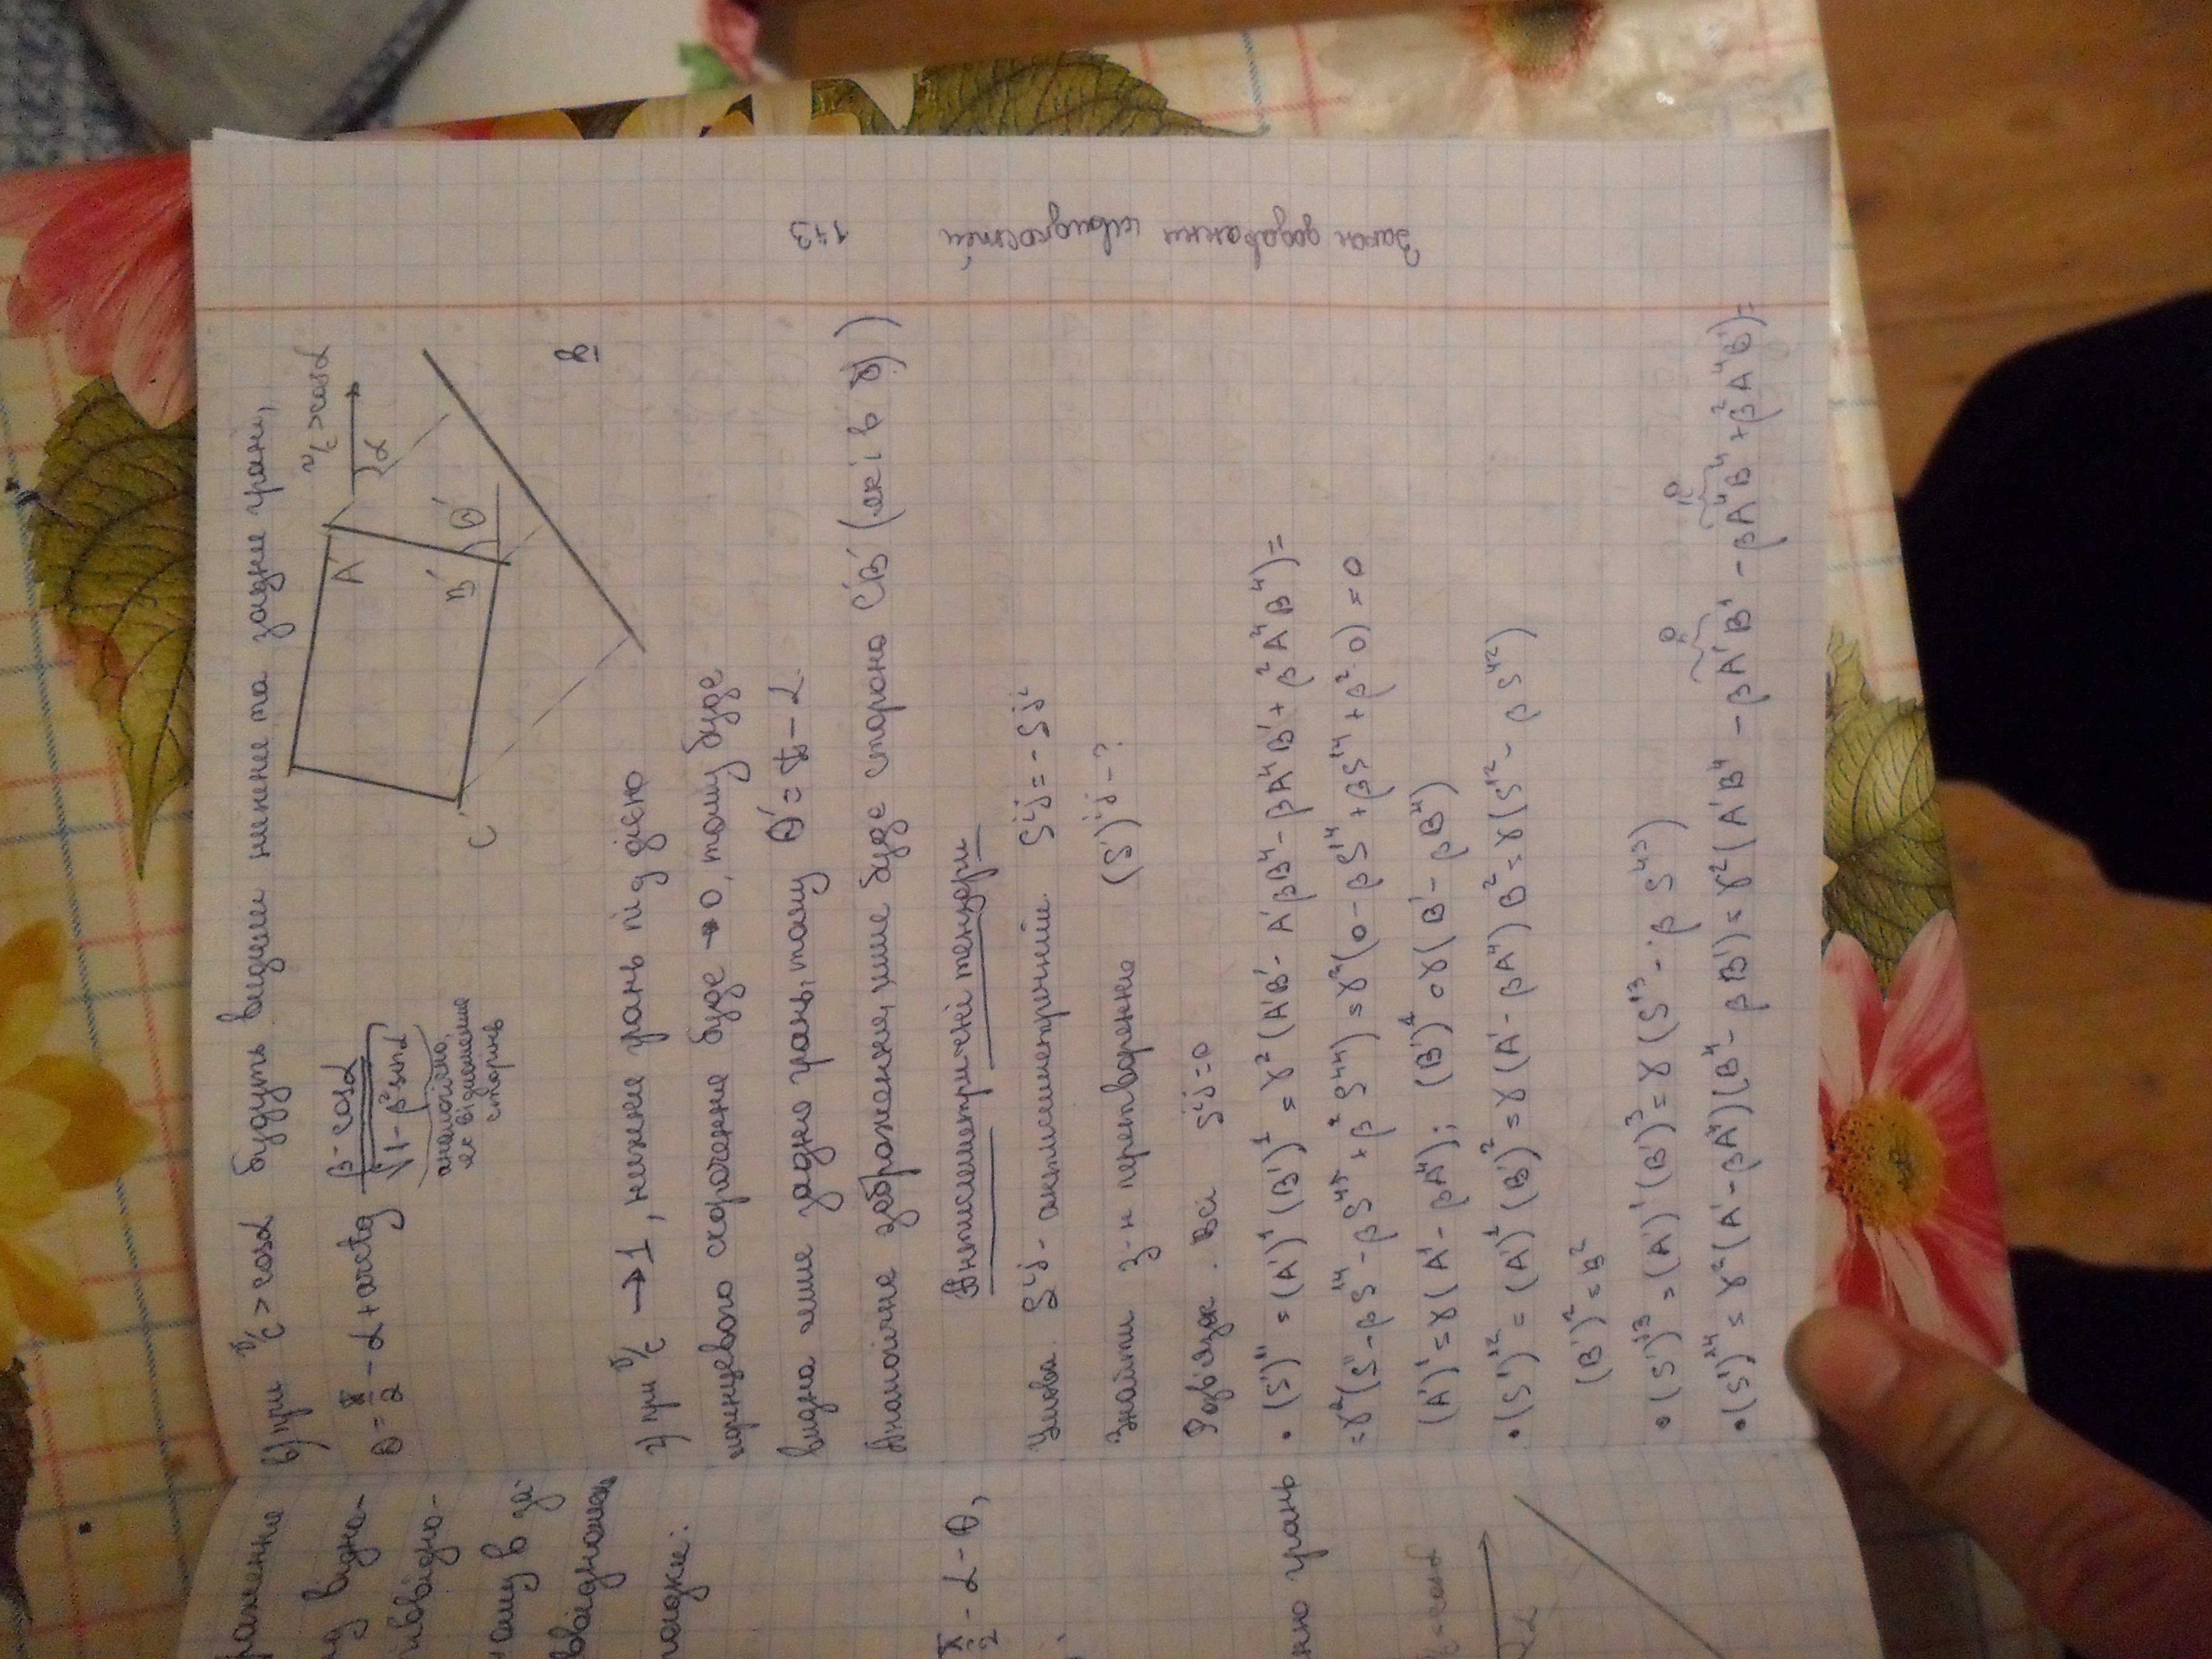 в) при v/c > cosα будуть видими нижня та задня грані,
θ = π/2 - α + arctg (β - cosα)/(√(1 - β² sinα))
аналогічно,
як відношення
сторін
v/c > cosα
α
A'
B'
θ'
C'
г) при v/c → 1, нижня грань під дією
лоренцевого скорочення буде → 0, тому буде
видна лише задня грань, тому θ' = π - α.
Аналогічне зображення, лише буде сторона C'B' (як і в
Антисиметричні тензори
Умова S^ij - антисиметричний. S^ij = - S^ji
Знайти з-н перетворення (S')^ij - ?
Розв'язок. Всі S^ij = 0
• (S')^11 = (A')^1 (B')^1 = γ² (A^1B^1 - A^1βB^4 - βA^4B^1 + β²A^4B^4) =
= γ²(S^11 - βS^14 - βS^41 + β²S^44) = γ²(0 - βS^14 + βS^14 + β²·0) = 0
(A')^1 = γ(A^1 - βA^4); (B')^1 = γ(B^1 - βB^4)
• (S')^12 = (A')^1 (B')^2 = γ(A^1 - βA^4)B^2 = γ(S^12 - βS^42)
(B')^2 = B^2
• (S')^13 = (A')^1 (B')^3 = γ(S^13 - βS^43)
• (S')^14 = γ²(A^1 - βA^4)(B^4 - βB^1) = γ²(A^1B^4 - βA^1B^1 - βA^4B^4 + β²A^4B^1) =
0
0
Закон додавання швидкостей 113
раменна
видно-
ому в
π/2 - α - θ,
грань
cosα
α